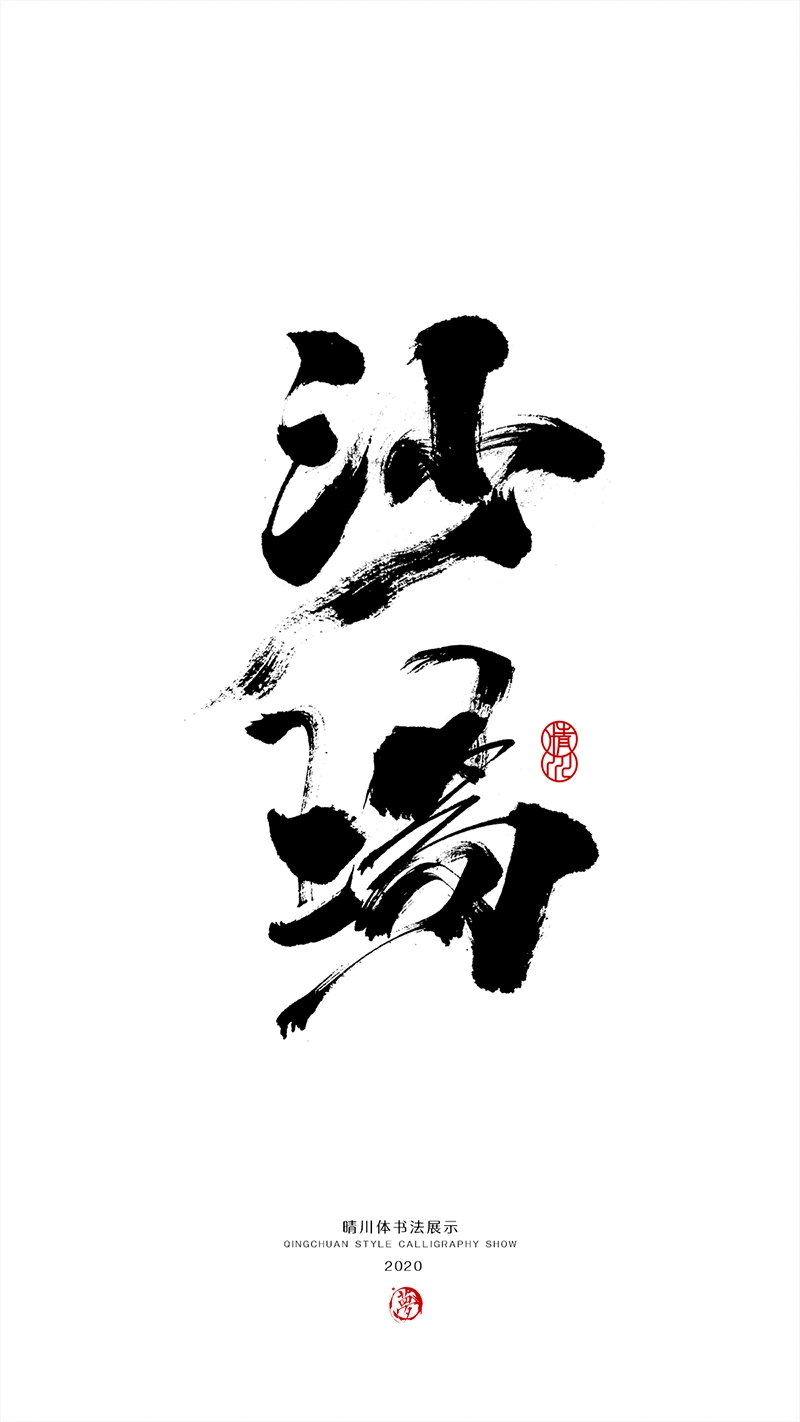 沙瑪
晴川
晴川体书法展示
QINGCHUAN STYLE CALLIGRAPHY SHOW
2020
夢